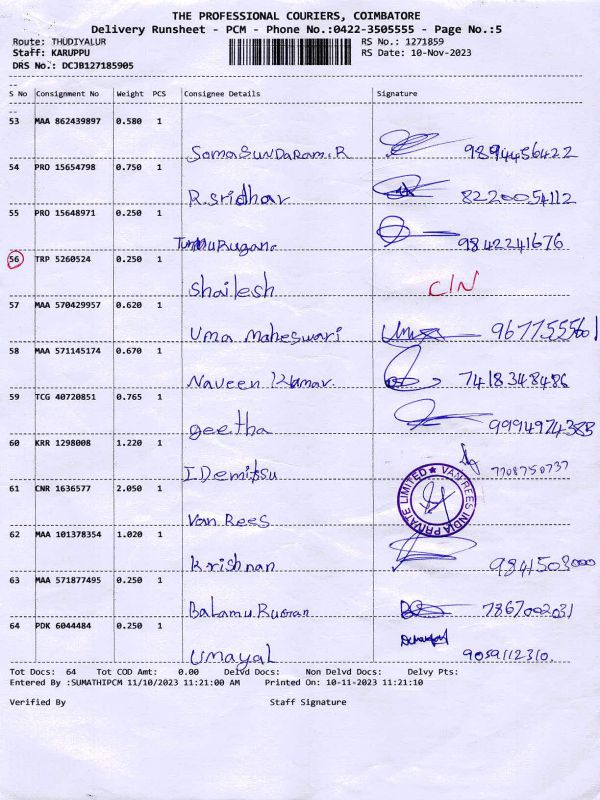 THE PROFESSIONAL COURIERS, COIMBATORE
Delivery Runsheet - PCM - Phone No.:0422-3505555 - Page No.:5
Route: THUDIYALUR RS No.: 1271859
Staff: KARUPPU RS Date: 10-Nov-2023
DRS No.: DCJB127185905
S No Consignment No Weight PCS Consignee Details Signature
53 MAA 862439897 0.580 1
SomaSunDaRam.R 9894456422
54 PRO 15654798 0.750 1
R.Sridhar 8220054112
55 PRO 15648971 0.250 1
9842241676
56 TRP 5260524 0.250 1
Shailesh C/N
57 MAA 570429957 0.620 1
Uma Maheswari Uma
58 MAA 571145174 0.670 1
Naveen Kumar. 7418348486
59 TCG 40720851 0.765 1
geetha
60 KRR 1298008 1.220 1
I Demitsu 7708750737
61 CNR 1636577 2.050 1
Van Rees VAN REES INDIA PRIVATE LIMITED ★
62 MAA 101378354 1.020 1
Krishnan
63 MAA 571877495 0.250 1
7867002031
64 PDK 6044484 0.250 1
Umayal 9059112310.
Tot Docs: 64 Tot COD Amt: 0.00 Delvd Docs: Non Delvd Docs: Delvy Pts:
Entered By :SUMATHIPCM 11/10/2023 11:21:00 AM Printed On: 10-11-2023 11:21:10
Verified By Staff Signature